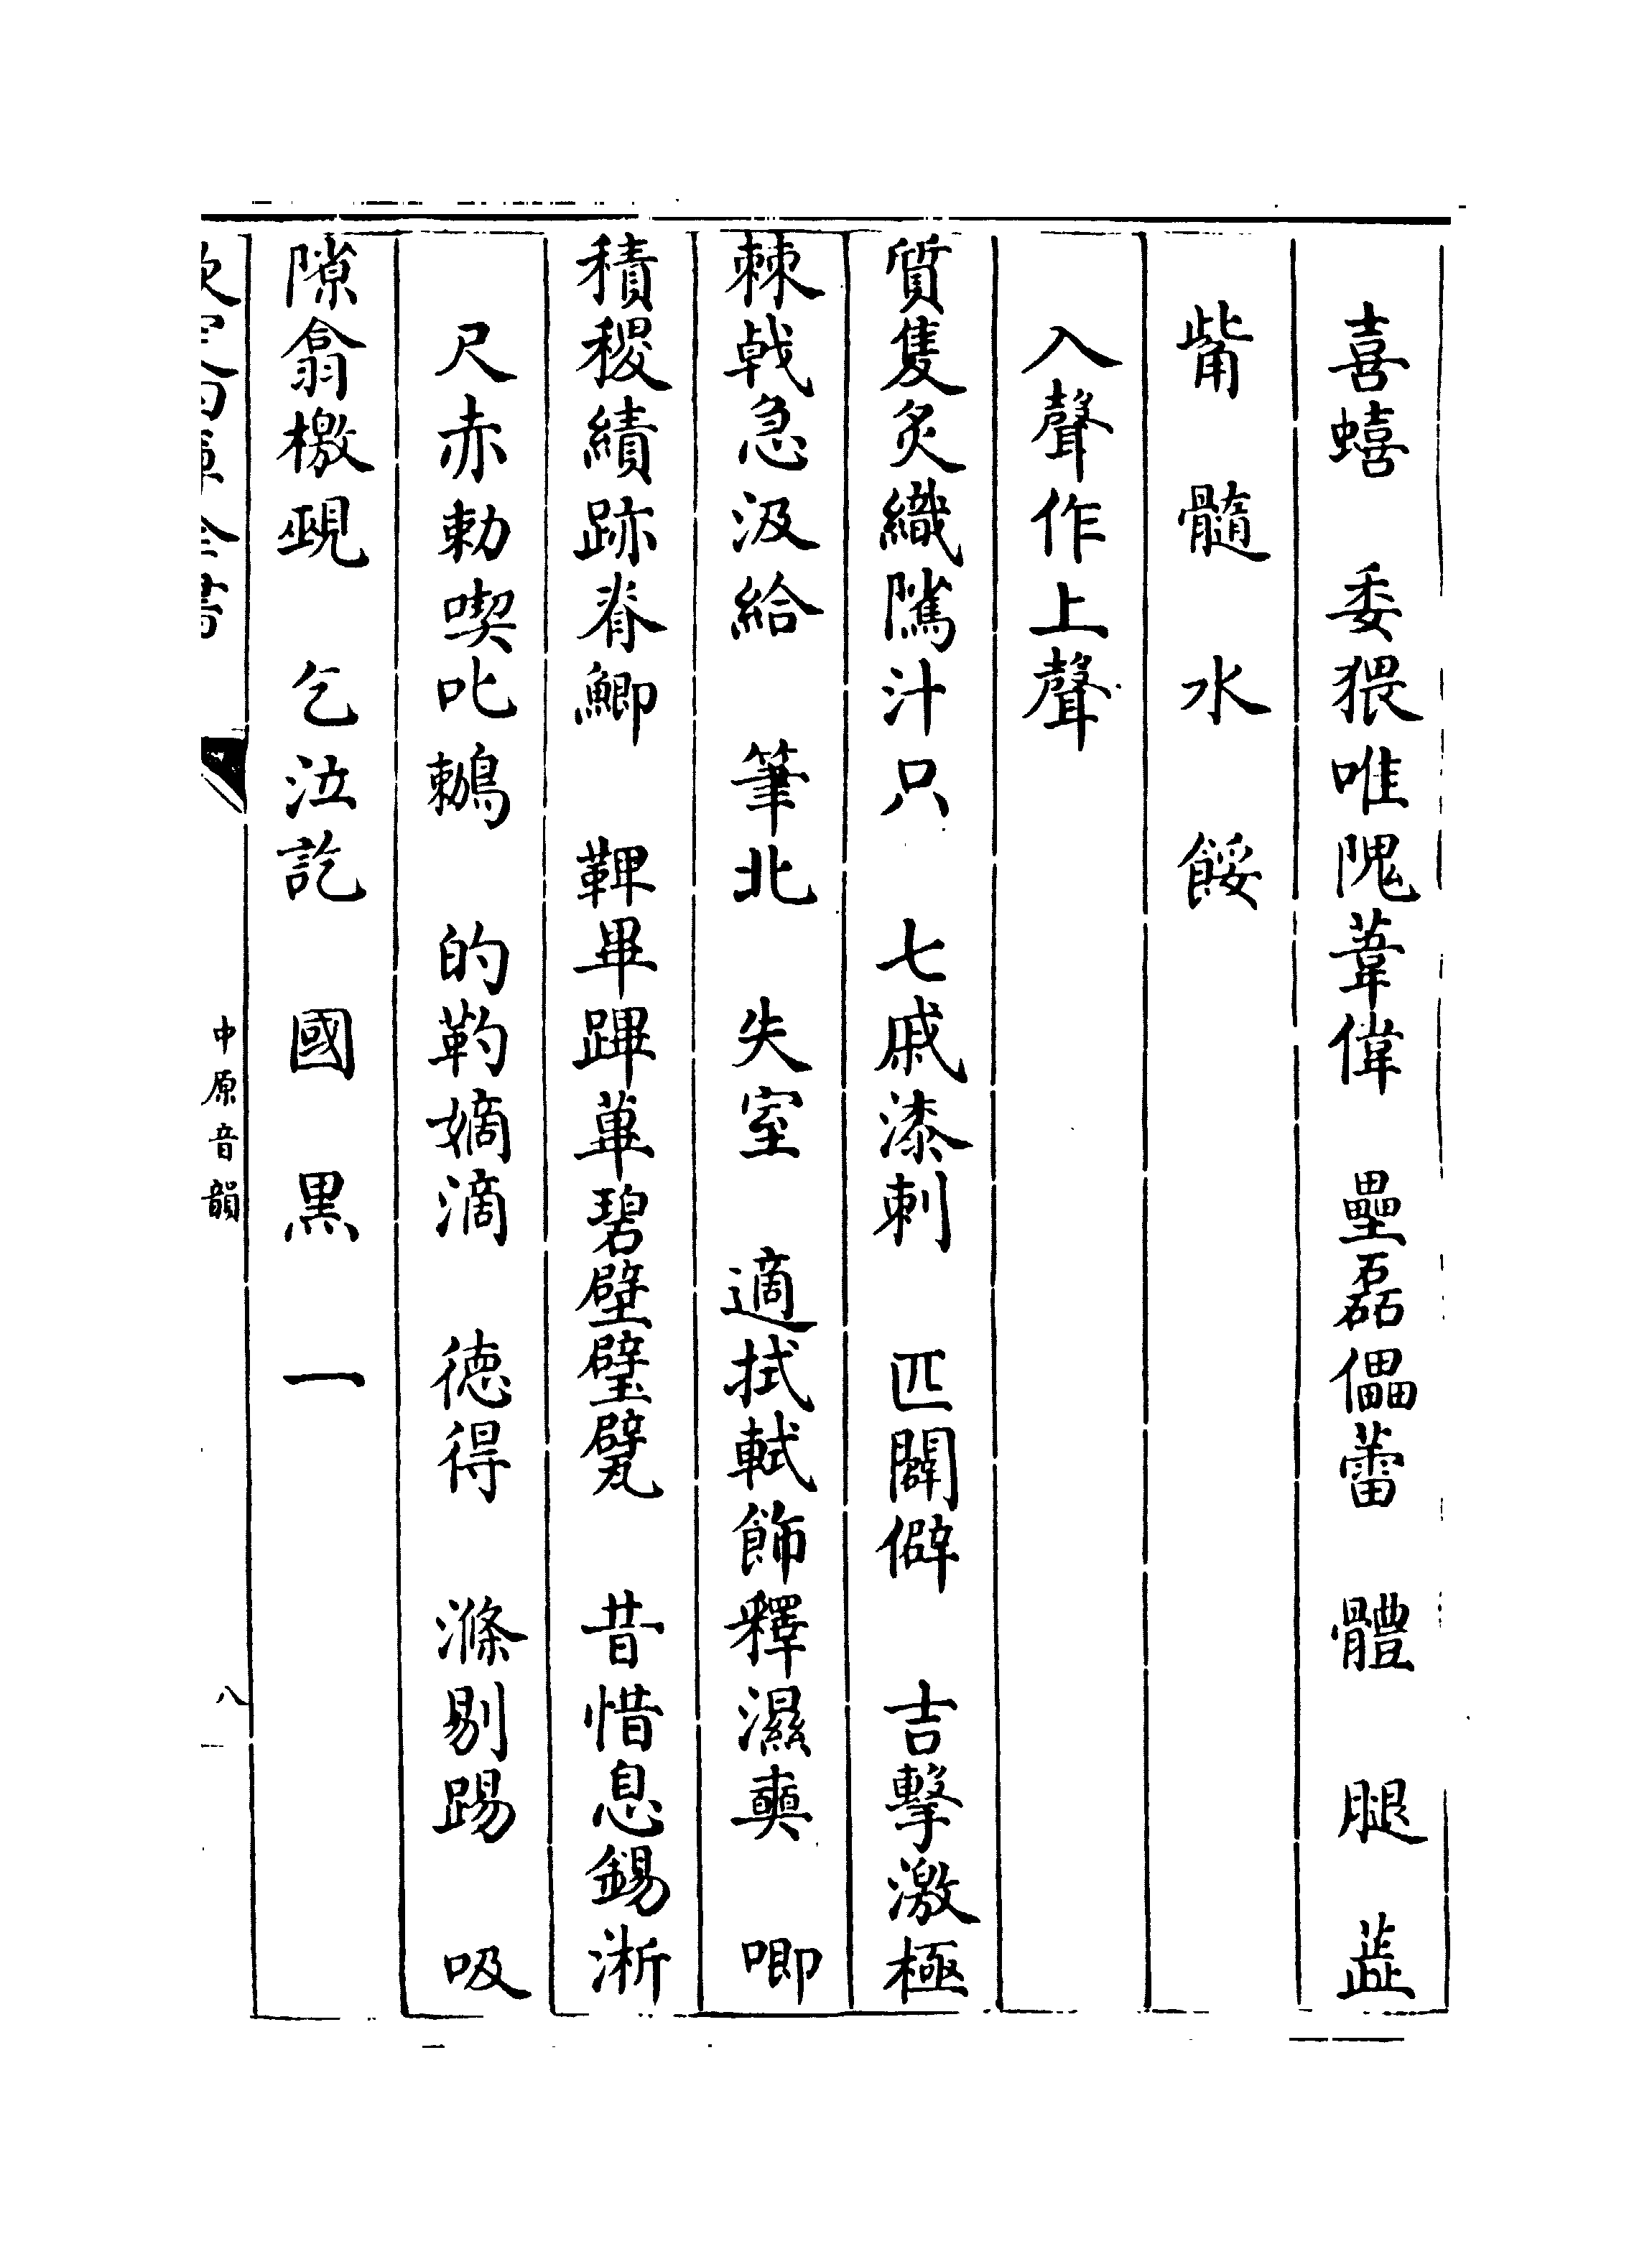 喜蟢　委猥唯隗葦偉　壘磊儡蕾　體　腿　蕋
觜　髓　水　餒
入聲作上聲
質隻炙織隲汁只　七戚漆刺　匹闢僻　吉擊激極
棘戟急汲給　筆北　失室　適拭軾飾釋濕奭　唧
積稷績跡脊鯽　鞸畢蹕蓽碧壁璧甓　昔惜息錫淅
尺赤勅喫叱鷘　的靮嫡滴　德得　滌剔踢　吸
隙翕檄覡　乞泣訖　國　黑　一
中原音韻
八